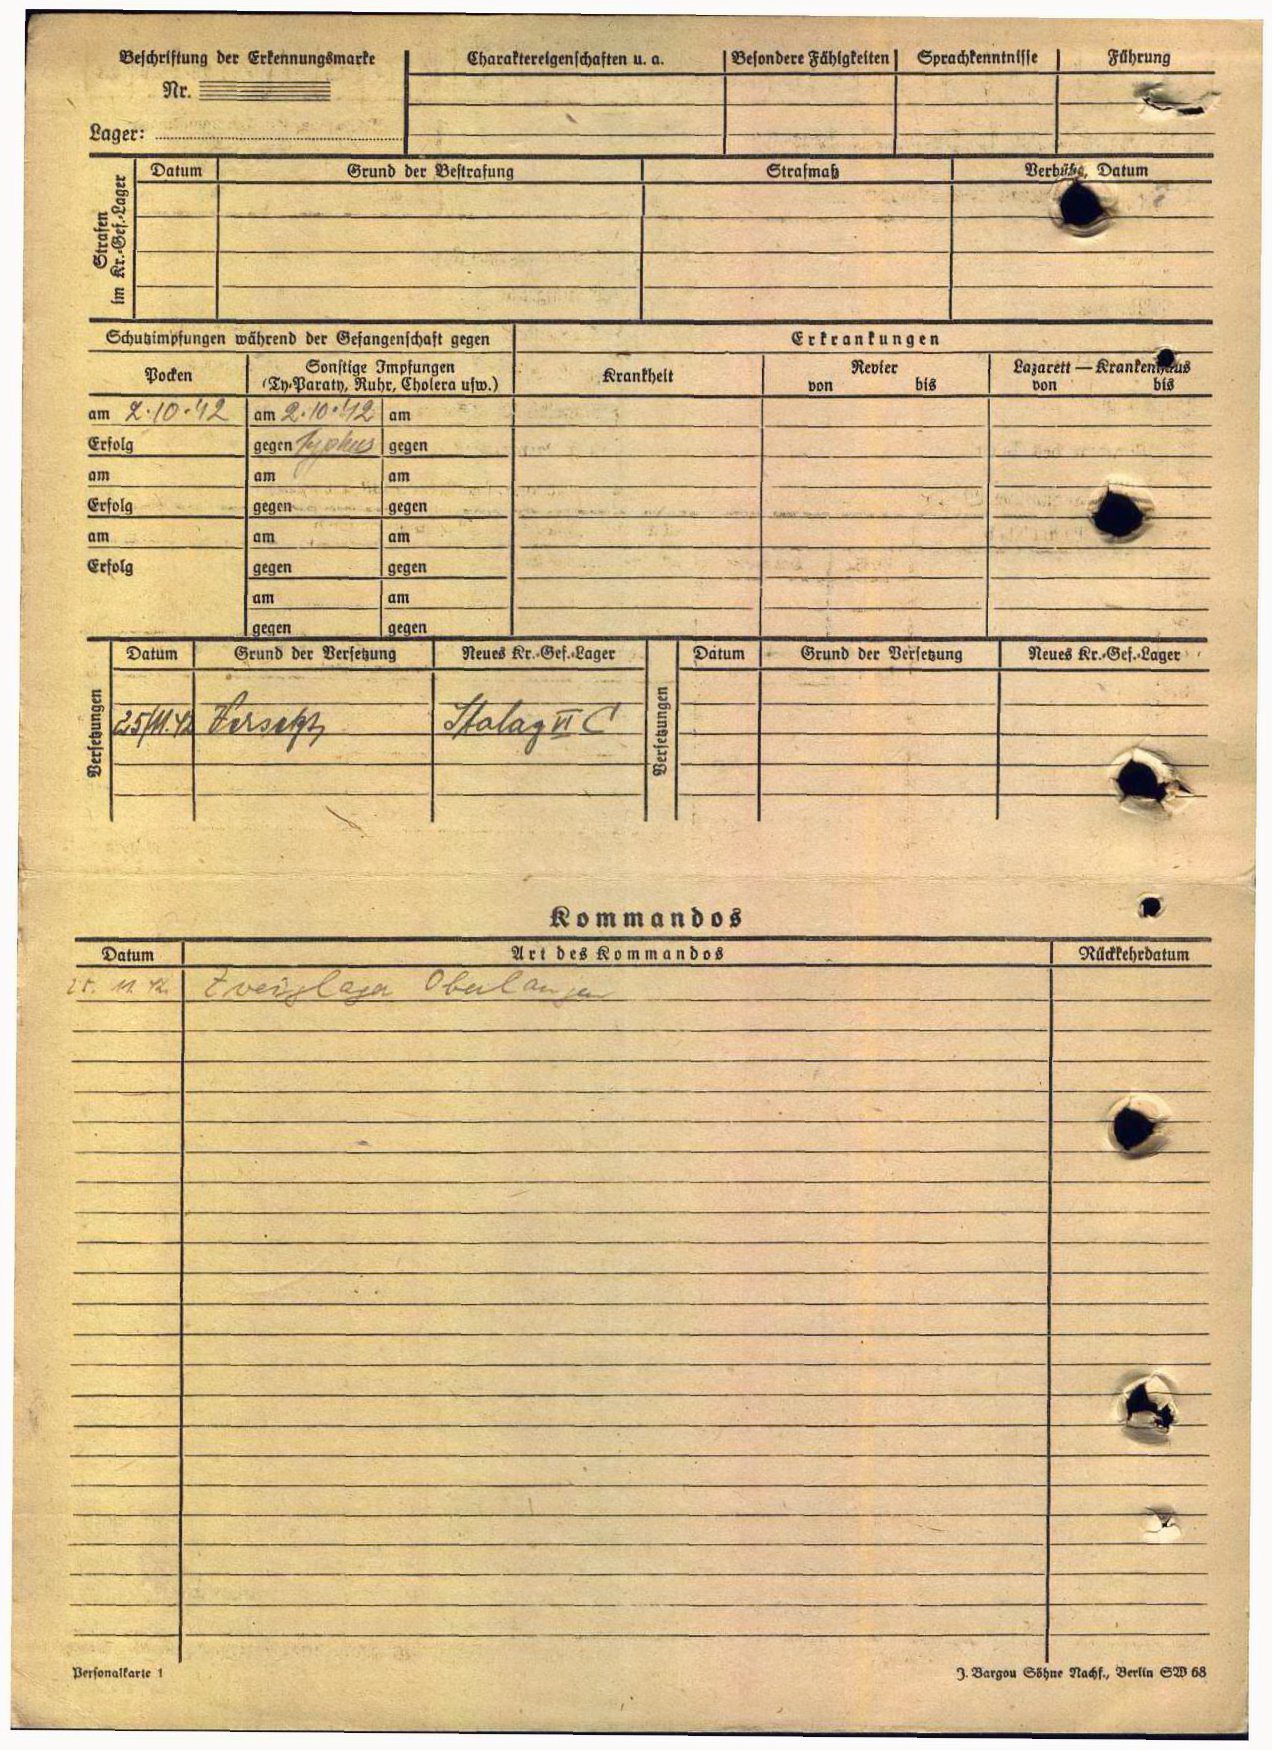 Beschriftung der Erkennungsmarke
Nr.
Lager:
Charaktereigenschaften u. a.
Besondere Fähigkeiten
Sprachkenntnisse
Führung
Strafen
im Kr.-Gef.-Lager
Datum
Grund der Bestrafung
Strafmaß
Verbüßt, Datum
Schutzimpfungen während der Gefangenschaft gegen
Erkrankungen
Pocken
Sonstige Impfungen
(Ty.-Paraty, Ruhr, Cholera usw.)
Krankheit
Revier
von bis
Lazarett — Krankenhaus
von bis
am 2.10.42 am 2.10.42 am
Erfolg gegen Typhus gegen
am am am
Erfolg gegen gegen
am am am
Erfolg gegen gegen
am am
gegen gegen
Versetzungen
Datum Grund der Versetzung Neues Kr.-Gef.-Lager
25/11.42 Versetzt Stalag VI C
Versetzungen
Datum Grund der Versetzung Neues Kr.-Gef.-Lager
Kommandos
Datum Art des Kommandos Rückkehrdatum
25. 11. 42. Zweiglager Oberlangen
Personalkarte 1
J. Bargou Söhne Nachf., Berlin SW 68